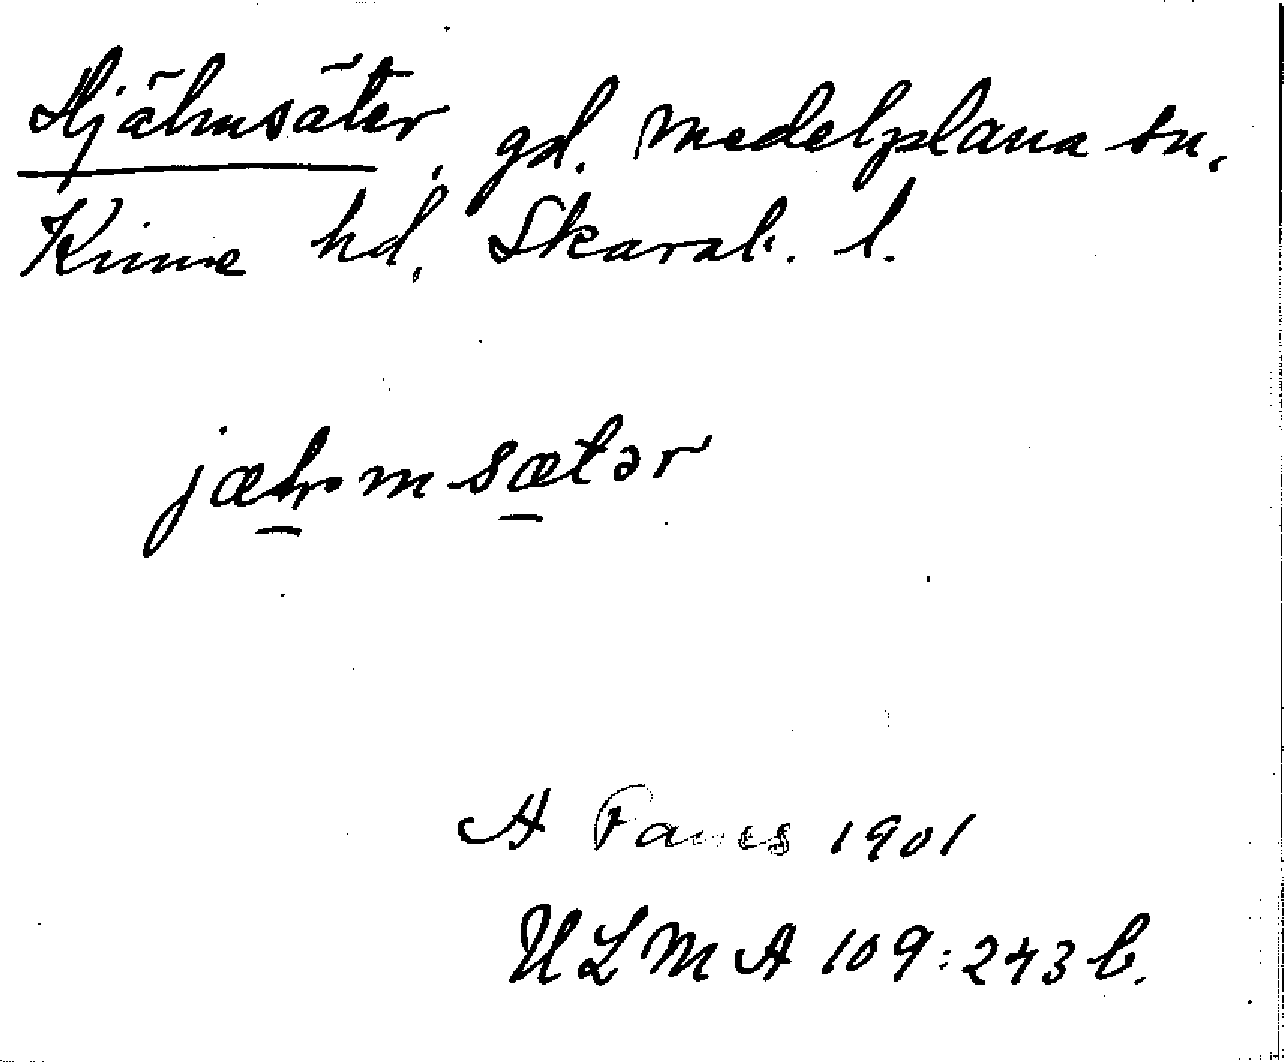 Hjälmsäter, gd. Medelplana sn,
Kinne hd, Skarab. l.
jælmsætər
A 1901
ULMA 109:243 b.